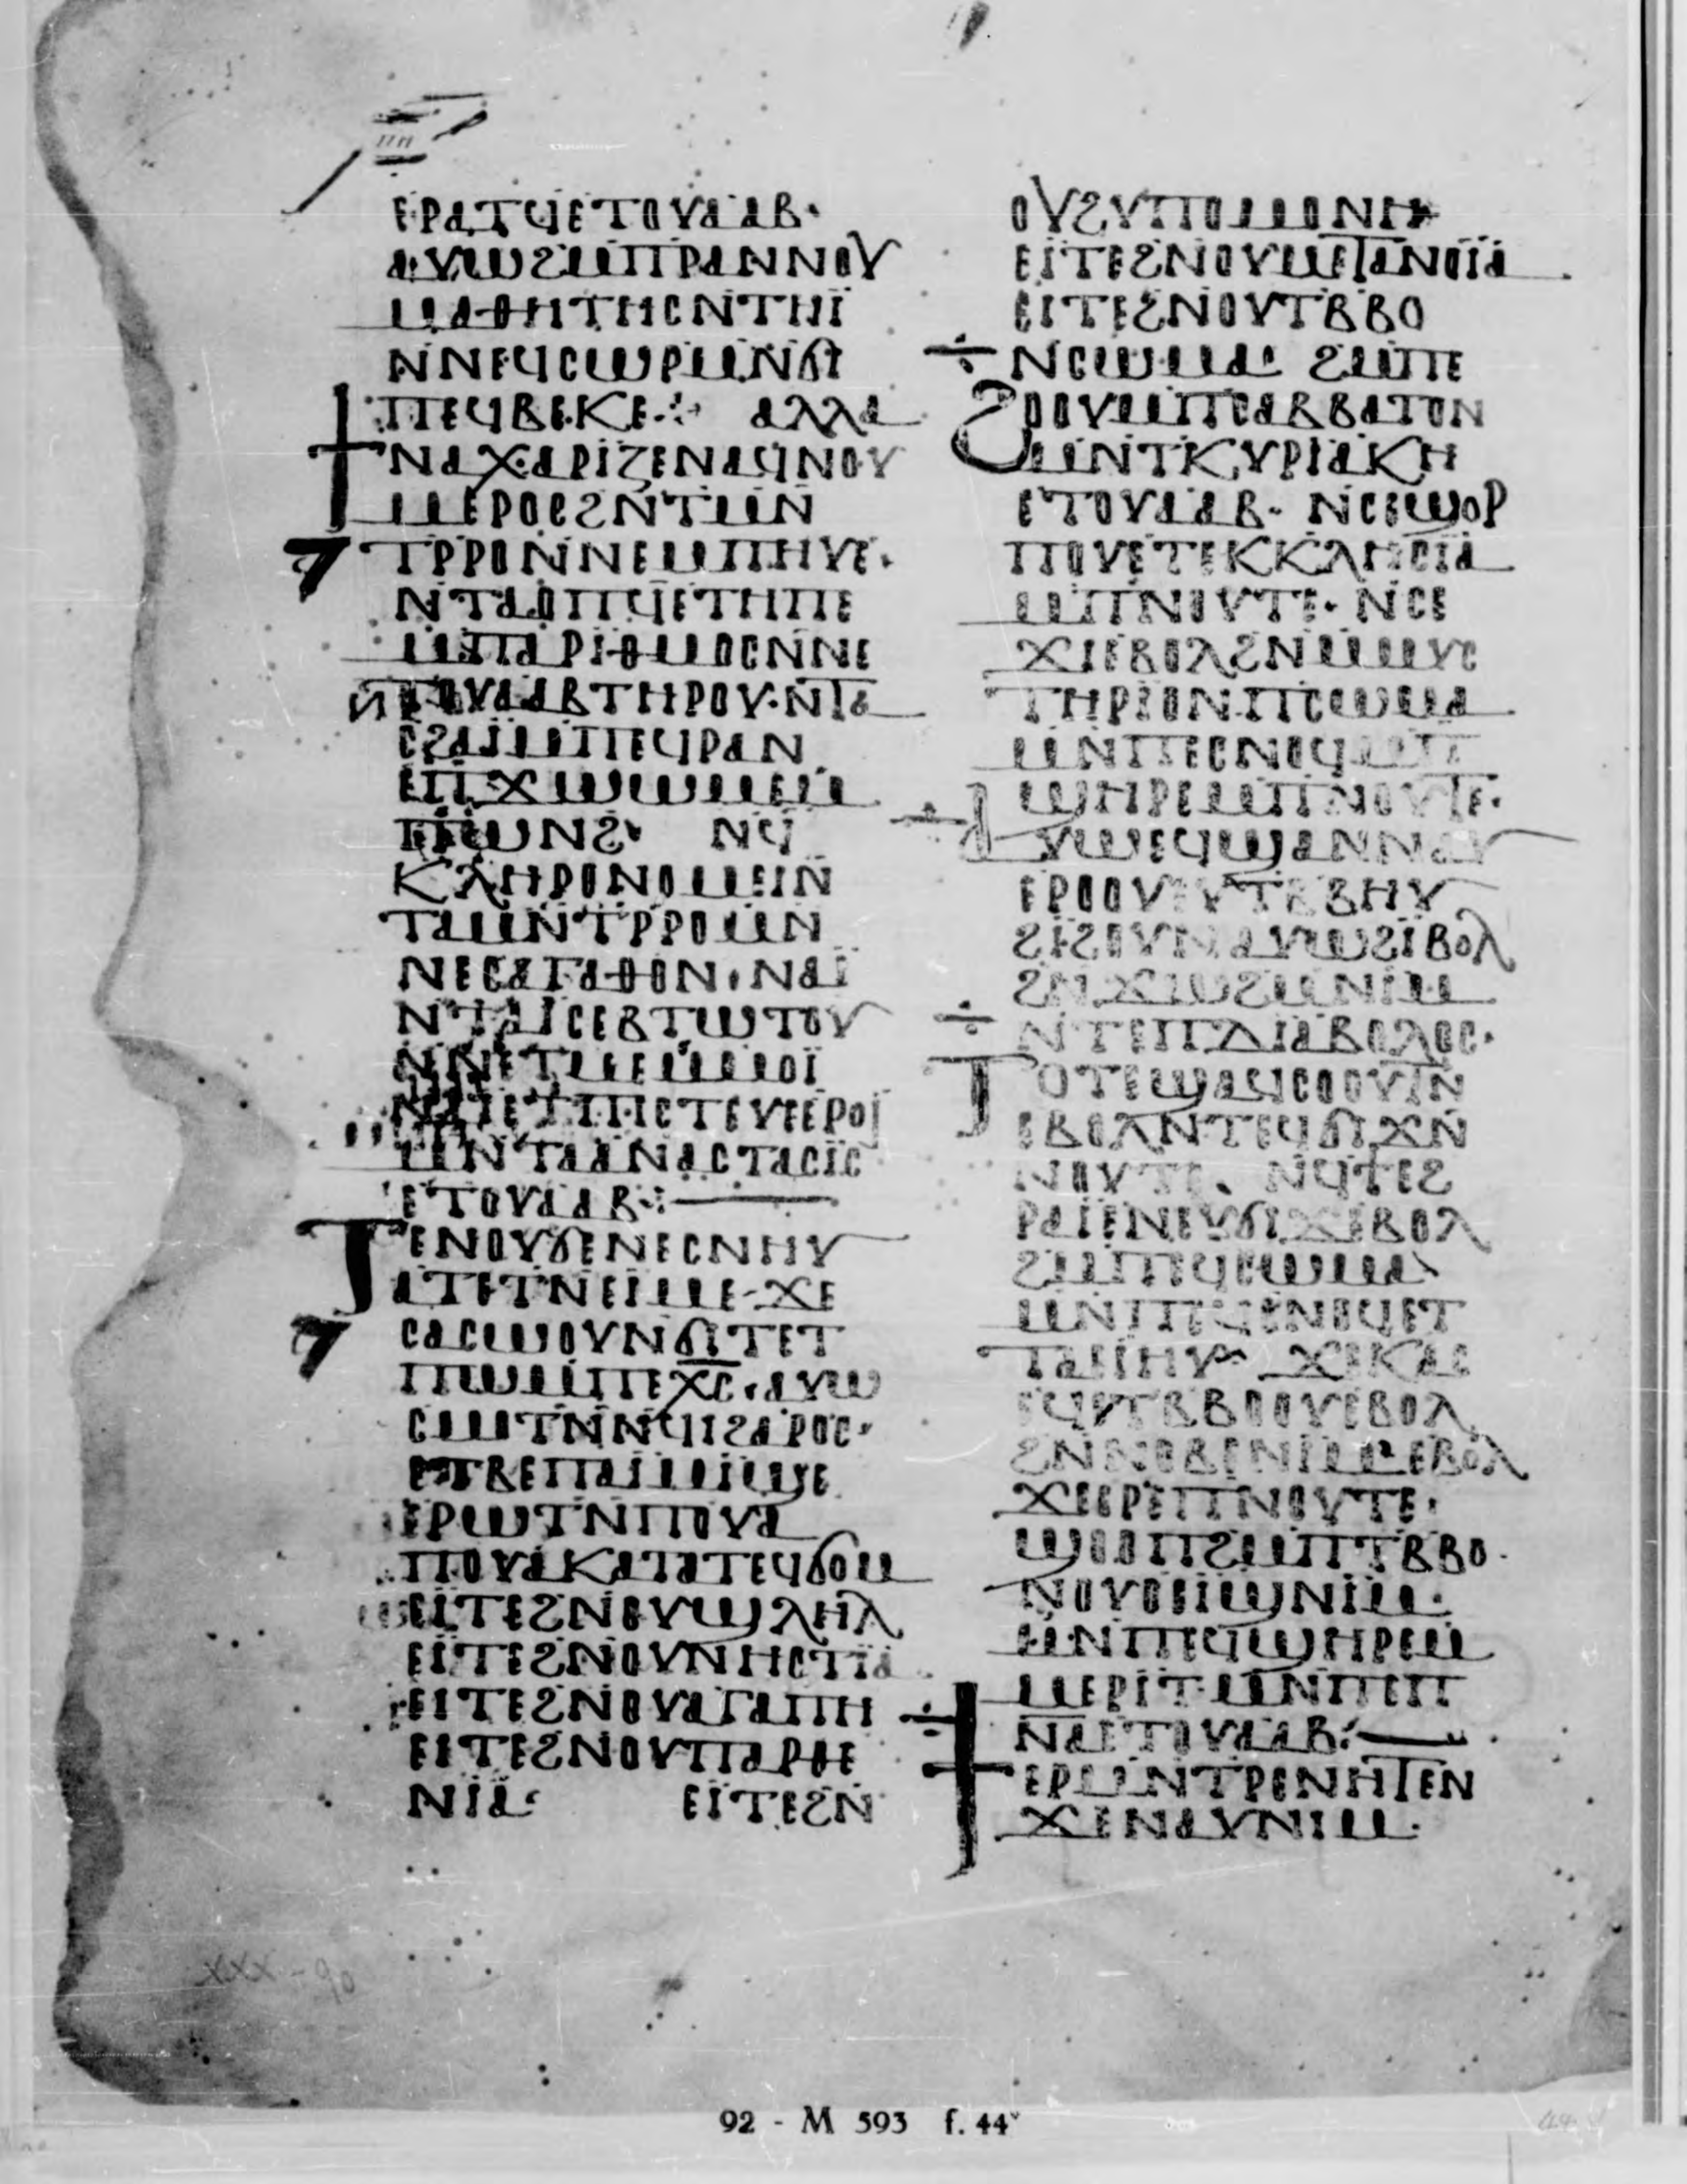 ⲡⲏ
ⲉⲣⲁⲧϥⲉⲧⲟⲩⲁⲁⲃ·
ⲁⲩⲱϩⲙⲡⲣⲁⲛⲛⲟⲩ
ⲙⲁⲑⲏⲧⲏⲥⲛⲧⲏⲓ̈
ⲛⲛⲉϥⲥⲱⲣⲙⲛϭⲓ
ⲡⲉϥⲃⲉⲕⲉ·:· ⲁⲗⲗⲁ
ϯⲛⲁⲭⲁⲣⲓⲍⲉⲛⲁϥⲛⲟⲩ
ⲙⲉⲣⲟⲥϩⲛⲧⲙⲛ
ⲧⲣⲣⲟⲛⲛⲉⲙⲡⲏⲩⲉ·
ⲛⲧⲁⲟⲡϥⲉⲧⲏⲡⲉ
ⲙⲡⲁⲣⲓⲑⲙⲟⲥⲛⲛⲉ
ⲧⲟⲩⲁⲁⲃⲧⲏⲣⲟⲩ·ⲛⲧⲁ
ⲥϩⲁⲓⲙⲡⲉϥⲣⲁⲛ
ⲉⲡϫⲱⲱⲙⲉⲙ
ⲡⲱⲛϩ· ⲛϥ
ⲕⲗⲏⲣⲟⲛⲟⲙⲉⲓⲛ
ⲧⲁⲙⲛⲧⲣⲣⲟⲙⲛ
ⲛⲉⲥⲁⲅⲁⲑⲟⲛ·ⲛⲁⲓ̈
ⲛⲧⲁⲓⲥⲉⲃⲧⲱⲧⲟⲩ
ⲛⲛⲉⲧⲙⲉⲙⲙⲟⲓ̈
ⲛⲉⲧⲡⲓⲥⲧⲉⲩⲉⲉⲣⲟⲓ
ⲙⲛⲧⲁⲁⲛⲁⲥⲧⲁⲥⲓ̈ⲥ
ⲉⲧⲟⲩⲁⲁⲃ:
ⲧⲉⲛⲟⲩϭⲉⲛⲉⲥⲛⲏⲩ
ⲁⲧⲉⲧⲛⲉⲓⲙⲉ·ϫⲉ
ⲥⲁⲥϣⲟⲩⲛϭⲓⲧⲉⲧ
ⲡⲱⲙⲡⲉⲭⲥ·ⲁⲩⲱ
ⲥⲙⲟⲧⲛⲛϥⲓϩⲁⲣⲟⲥ·
ⲉⲧⲃⲉⲡⲁⲓⲙⲓϣⲉ
ⲉⲣⲱⲧⲛⲡⲟⲩⲁ
ⲡⲟⲩⲁⲕⲁⲧⲁⲧⲉϥϭⲟⲙ
ⲉⲓ̈ⲧⲉϩⲛⲟⲩϣⲗⲏⲗ
ⲉⲓ̈ⲧⲉϩⲛⲟⲩⲛⲏⲥⲧⲓ̈ⲁ
ⲉⲓⲧⲉϩⲛⲟⲩⲁⲅⲁⲡⲏ
ⲉⲓⲧⲉϩⲛⲟⲩⲡⲁⲣⲑⲉ
ⲛⲓⲁ· ⲉⲓ̈ⲧⲉϩⲛ
ⲟⲩϩⲩⲡⲟⲙⲟⲛⲏ
ⲉⲓ̈ⲧⲉϩⲛⲟⲩⲙⲉⲧⲁⲛⲟⲓ̈ⲁ
ⲉⲓⲧⲉϩⲛⲟⲩⲧⲃⲃⲟ
ⲛⲥⲱⲙⲁ· ϩⲙⲡⲉ
ϩⲟⲟⲩⲙⲡⲥⲁⲃⲃⲁⲧⲟⲛ
ⲙⲛⲧⲕⲩⲣⲓⲁⲕⲏ
ⲉⲧⲟⲩⲁⲁⲃ· ⲛⲥⲉϣⲟⲣ
ⲡⲟⲩⲉⲧⲉⲕⲕⲗⲏⲥⲓ̈ⲁ
ⲙⲡⲛⲟⲩⲧⲉ· ⲛⲥⲉ
ϫⲓⲉⲃⲟⲗϩⲛⲙⲙⲩⲥ
ⲧⲏⲣⲓⲟⲛⲡⲥⲱⲙⲁ
ⲙⲛⲡⲉⲥⲛⲟϥⲙⲡ
ϣⲏⲣⲉⲙⲡⲛⲟⲩⲧⲉ·
ⲁⲩⲱⲉϥϣⲁⲛⲛⲁⲩ
ⲉⲣⲟⲟⲩⲉⲩⲧⲃⲃⲏⲩ
ϩⲓϩⲟⲩⲛⲁⲩⲱϩⲓ̈ⲃⲟⲗ
ϩⲛϫⲱϩⲙⲛⲓⲙ
ⲛⲧⲉⲡⲇⲓⲁⲃⲟⲗⲟⲥ·
ⲧⲟⲧⲉϣⲁϥⲥⲟⲟⲩⲧⲛ
ⲉⲃⲟⲗⲛⲧⲉϥϭⲓϫⲛ
ⲛⲟⲩⲧⲉ· ⲛϥϯⲉϩ
ⲣⲁⲓⲉⲛⲉⲩϭⲓϫⲉⲃⲟⲗ
ϩⲙⲡϥⲥⲱⲙⲁ
ⲙⲛⲡⲉϥⲥⲛⲟϥⲉⲧ
ⲧⲁⲉⲓⲏⲩ ϫⲉⲕⲁⲥ
ⲉϥⲛⲧⲃⲃⲟⲟⲩⲉⲃⲟⲗ
ϩⲛⲛⲟⲃⲉⲛⲓⲙⲉⲃⲟⲗ
ϫⲉⲉⲣⲉⲡⲛⲟⲩⲧⲉ·
ϣⲟⲟⲡϩⲙⲡⲧⲃⲃⲟ·
ⲛⲟⲩⲟⲉⲓϣⲛⲓⲙ·
ⲙⲛⲡⲉϥϣⲏⲣⲉⲙ
ⲙⲉⲣⲓⲧ·ⲙⲛⲡⲉⲡ
ⲛⲁⲉⲧⲟⲩⲁⲁⲃ:
ϯⲉⲣⲙⲛⲧⲣⲉⲛⲏⲧⲉⲛ
ϫⲉⲛⲁⲩⲛⲓⲙ·
xxx - 90
92 - M 593 f. 44ᵛ